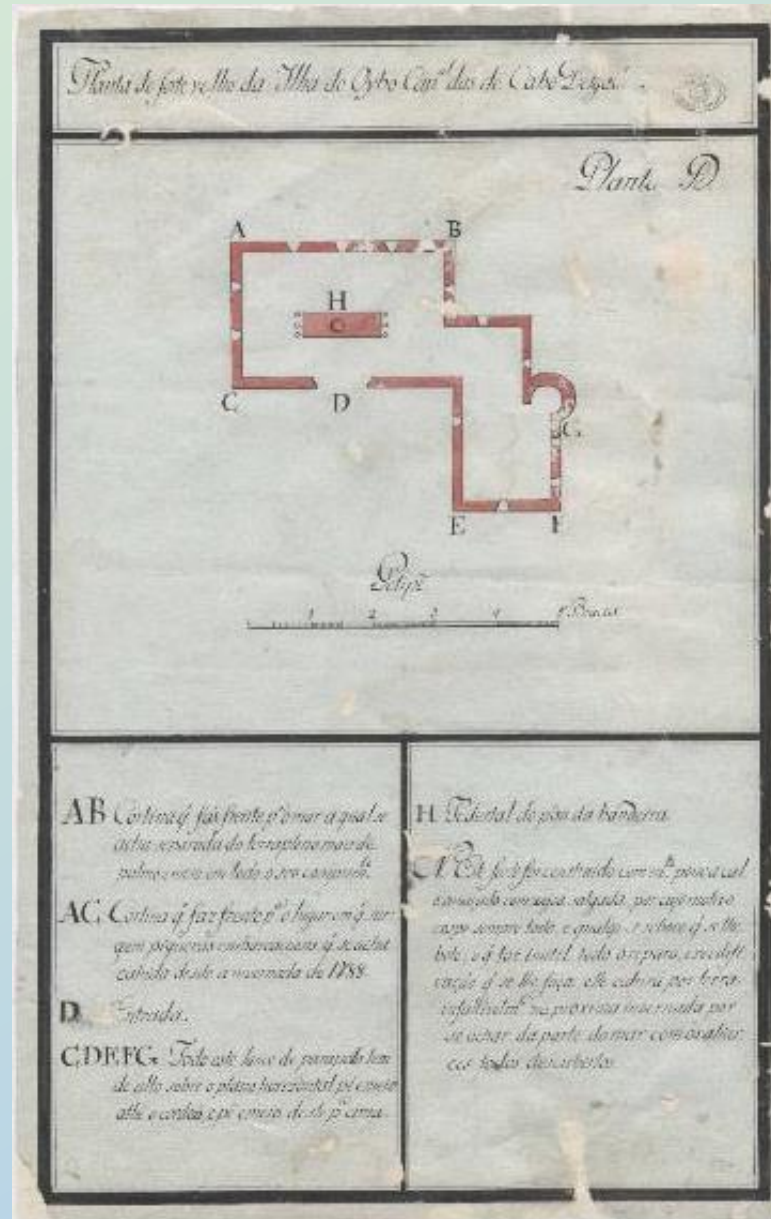 Planta do forte velho da Ilha do Oybo Cap.al das de Cabo Delgad.
Planta D.
A B
H
C D
G
E F
Petipé
1 2 3 4 5 Braças
AB Cortina q̃ fas frente p.ª o mar a qual se
acha separada do terrapleno mais de
palmo e meio em todo o seu comprim.to
AC Cortina q̃ faz frente p.ª o lugar em q̃ sur-
gem piquenas embarcacoens q̃ se acha
cahida desde a invernada de 1788
D Entrada.
C,D,E,F,G. Todo este lance de parapeito tem
de alto sobre o plano horizontal pé e meio
athe o cordão, e pé e meio deste p.ª cima.
H Pedestal do páo da bandeira.
N. Este forte foi construido com m.ta pouca cal
e amaçada com agoa salgada, por cujo motivo
cospe sempre todo, e qualqr. reboco q̃ se lhe
bote, e q̃ faz inutil todo o reparo, e reedifi-
cação q̃ se lhe faça: elle cahirá por terra
infalivelm.te na proxima invernada por
se achar da parte do mar com os alicer-
ces todos descubertos.